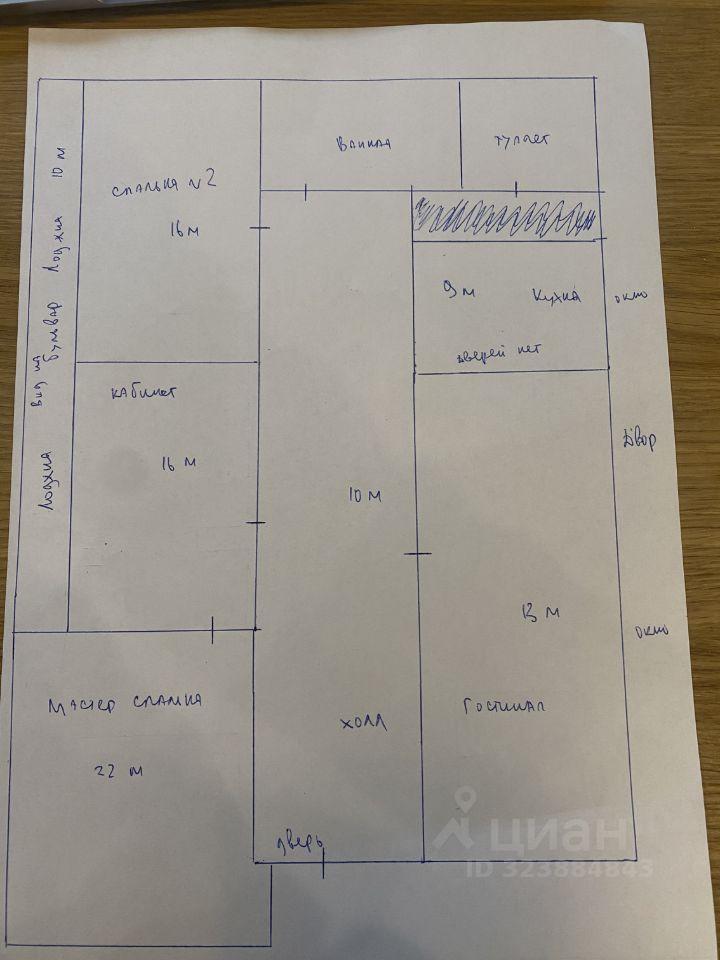 Ванна
туалет
спальня N2
16 м
Лоджия вид на бульвар Лоджия 10 м
9 м Кухня
окно
дверей нет
кабинет
16 м
Двор
10 м
13 м
окно
Мастер спальня
22 м
Гостиная
холл
дверь
циан
ID 323884843